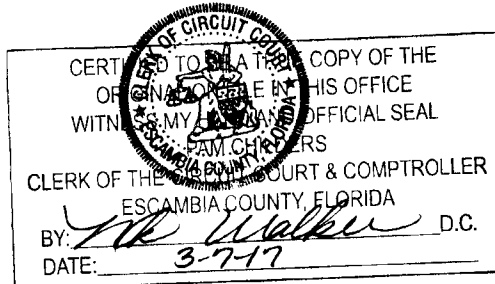 CLERK OF CIRCUIT COURT
ESCAMBIA COUNTY, FLORIDA
CERTIFIED TO BE A TRUE COPY OF THE
ORIGINAL ON FILE IN THIS OFFICE
WITNESS MY HAND AND OFFICIAL SEAL
PAM CHILDERS
CLERK OF THE CIRCUIT COURT & COMPTROLLER
ESCAMBIA COUNTY, FLORIDA
BY: Walker D.C.
DATE: 3-7-17